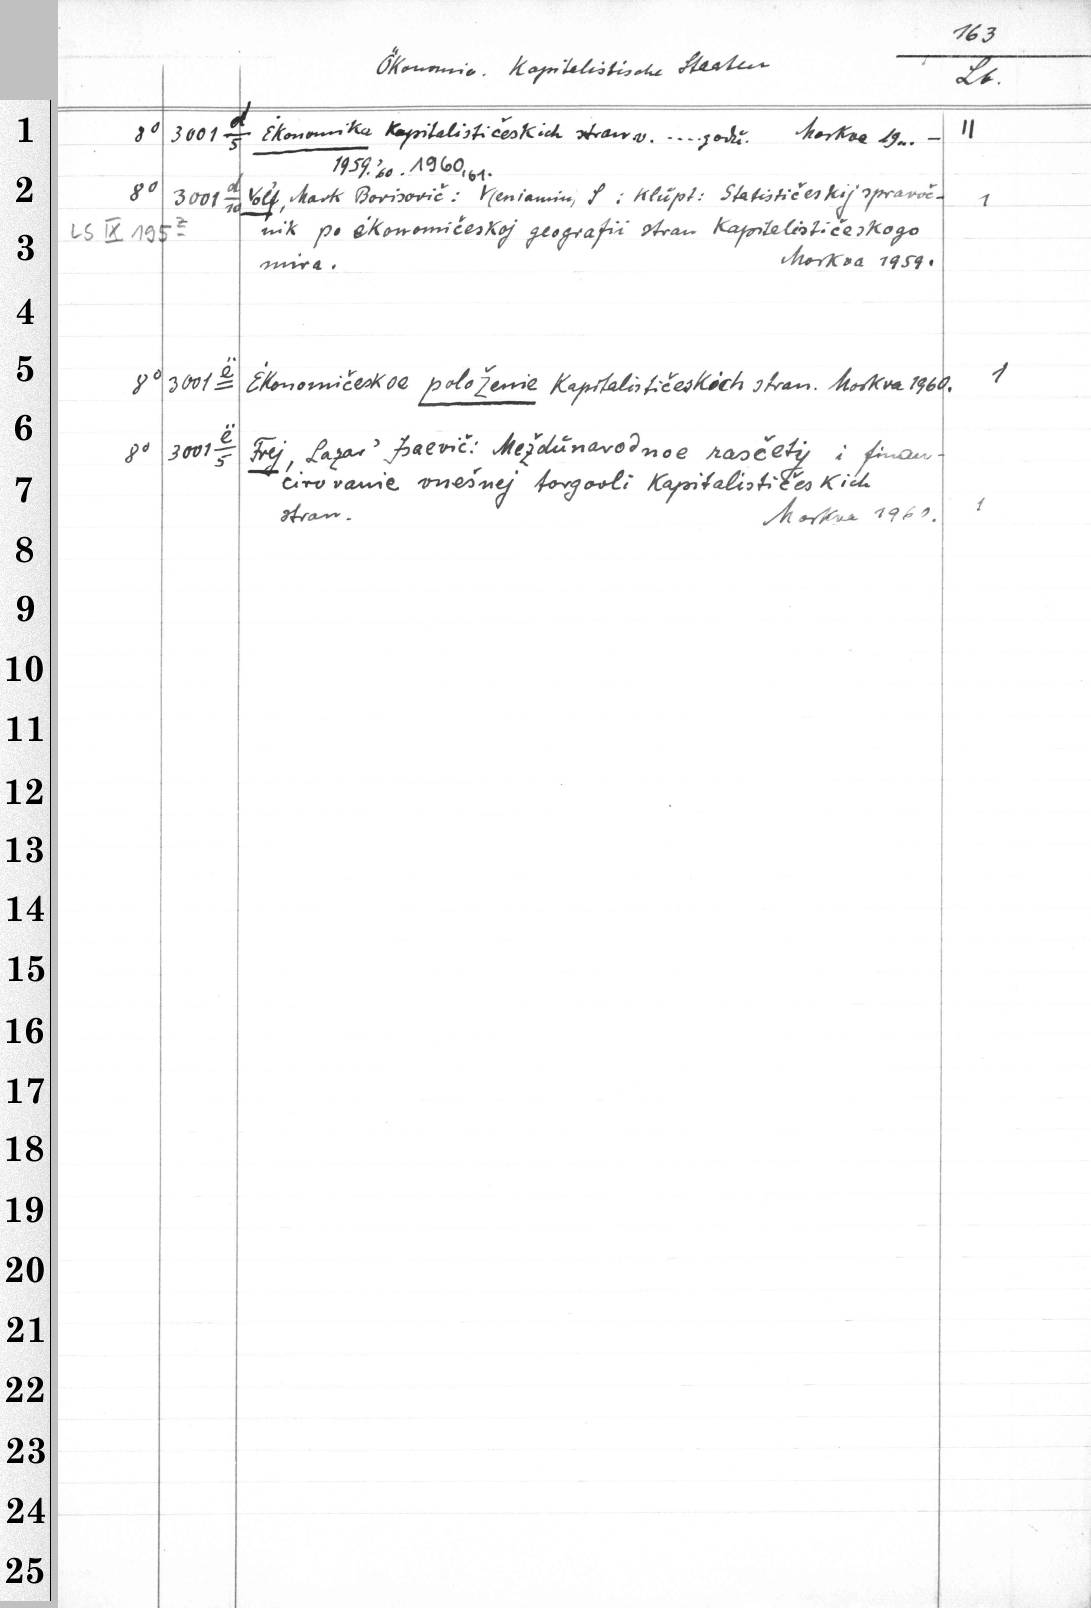 163
Ökonomie. Kapitalistische Staaten
Lb.
1 8° 3001 d/5 Ėkonomika Kapitalističeskich stran v. ....godu. Moskva 19.. – II
1959.'60. 1960,'61.
2 8° 3001 d/10 Vol'f, Mark Borisovič: Veniamin, S : Klupt: Statističeskij spravoč- 1
3 LS IX 195 z nik po ėkonomičeskoj geografii stran Kapitalističeskogo
mira. Moskva 1959.
4
5 8° 3001 ë Ėkonomičeskoe položenie Kapitalističeskich stran. Moskva 1960. 1
6 8° 3001 ë/5 Frej, Lazar' Isaevič: Meždunarodnoe rasčety i finan-
7 cirovanie vnešnej torgovli Kapitalističeskich
stran. Moskva 1960. 1
8
9
10
11
12
13
14
15
16
17
18
19
20
21
22
23
24
25